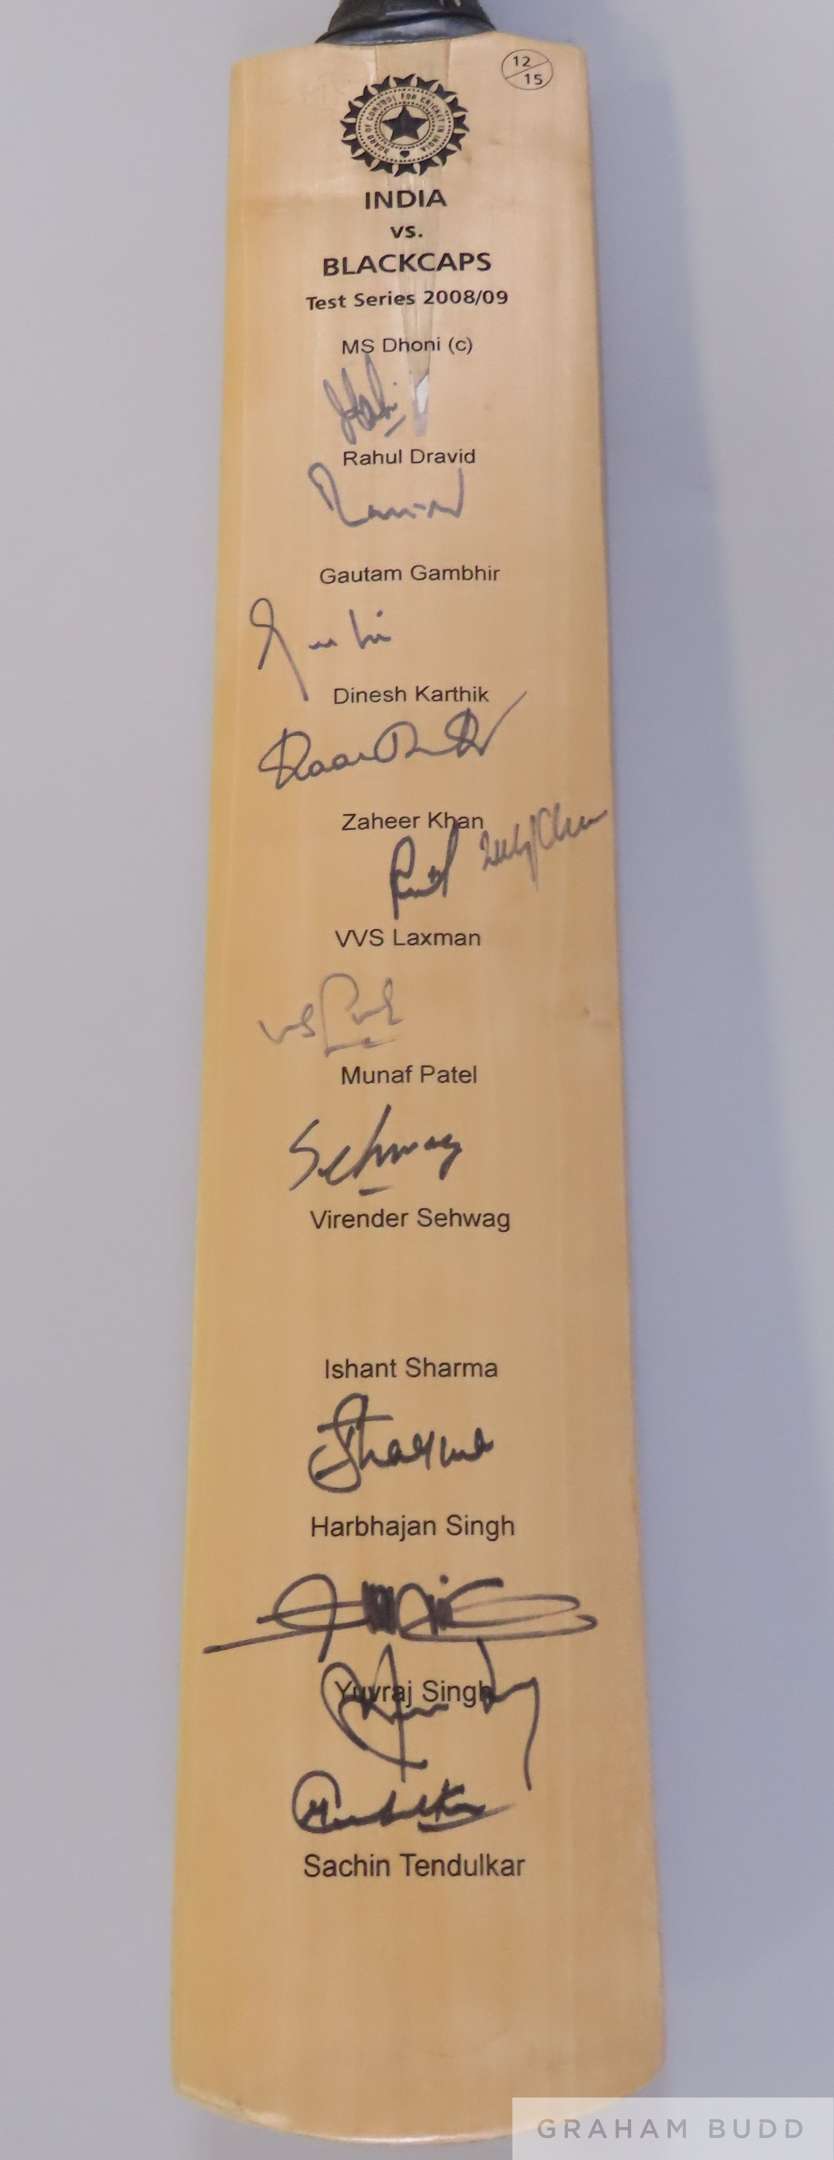 12
15
BOARD OF CONTROL FOR CRICKET IN INDIA
INDIA
vs.
BLACKCAPS
Test Series 2008/09
MS Dhoni (c)
Rahul Dravid
Gautam Gambhir
Dinesh Karthik
Zaheer Khan
VVS Laxman
Munaf Patel
Sehwag
Virender Sehwag
Ishant Sharma
Sharma
Harbhajan Singh
Yuvraj Singh
Sachin Tendulkar
GRAHAM BUDD